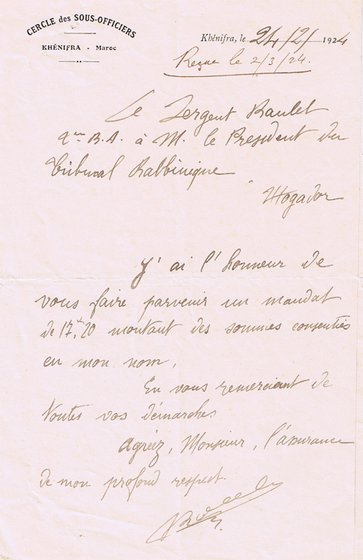 CERCLE des SOUS-OFFICIERS
KHÉNIFRA - Maroc
Khénifra, le 24/2/1924
Reçue le 2/3/24.
Le Sergent Raulet
B.A. à M. le Président du
Tribunal Rabbinique
Mogador
J'ai l'honneur de
vous faire parvenir un mandat
de 17,20 montant des sommes
en mon nom.
En vous remerciant de
toutes vos démarches
Agréez, Monsieur, l'assurance
de mon profond respect.